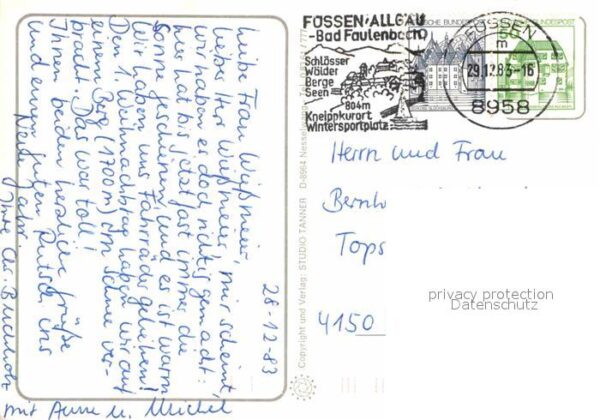 28-12-83
Liebe Frau Wüßtmeier,
lieber Herr Wüßtmeier, mir scheint,
wir haben es doch richtig gemacht:
hier hat bis jetzt fast immer die
Sonne geschienen, und es ist warm.
Wir haben uns Fahrräder geliehen!
Den 1. Weihnachtstag haben wir auf
einem Berg (1700 m) im Schnee ver-
bracht. Das war toll!
Ihnen beiden herzliche Grüße
und einen guten Rutsch ins
Neue Jahr.
Ihre Chr. Buchholz
mit Anne u. Michel
Copyright und Verlag: STUDIO TANNER D-8964 Nesselwang
FÜSSEN/ALLGÄU
-Bad Faulenbach
Schlösser
Wälder
Berge
Seen
804m
Kneippkurort
Wintersportplatz
DEUTSCHE BUNDESPOST
DEUTSCHE BUNDESPOST
FÜSSEN
m
29.12.83-16
8958
Herrn und Frau
Bernh
Tops
4150
privacy protection
Datenschutz